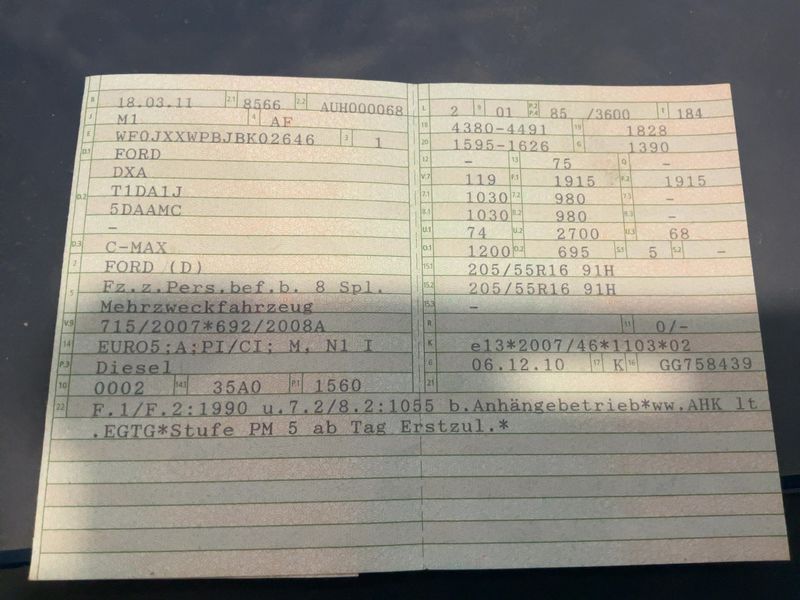 B 18.03.11 2.1 8566 2.2 AUH000068
J M1 4 AF
E WF0JXXWPBJBK02646 3 1
D.1 FORD
DXA
D.2 T1DA1J
5DAAMC
-
D.3 C-MAX
2 FORD (D)
5 Fz.z.Pers.bef.b. 8 Spl.
Mehrzweckfahrzeug
V.9 715/2007*692/2008A
14 EURO5;A;PI/CI; M, N1 I
P.3 Diesel
10 0002 14.1 35A0 P.1 1560
L 2 9 01 P.2 P.4 85 /3600 T 184
18 4380-4491 19 1828
20 1595-1626 G 1390
12 - 13 75 Q -
V.7 119 F.1 1915 F.2 1915
7.1 1030 7.2 980 7.3 -
8.1 1030 8.2 980 8.3 -
U.1 74 U.2 2700 U.3 68
O.1 1200 O.2 695 S.1 5 S.2 -
15.1 205/55R16 91H
15.2 205/55R16 91H
15.3 -
R 11 0/-
K e13*2007/46*1103*02
6 06.12.10 17 K 16 GG758439
21
22 F.1/F.2:1990 u.7.2/8.2:1055 b.Anhängebetrieb*ww.AHK lt
.EGTG*Stufe PM 5 ab Tag Erstzul.*